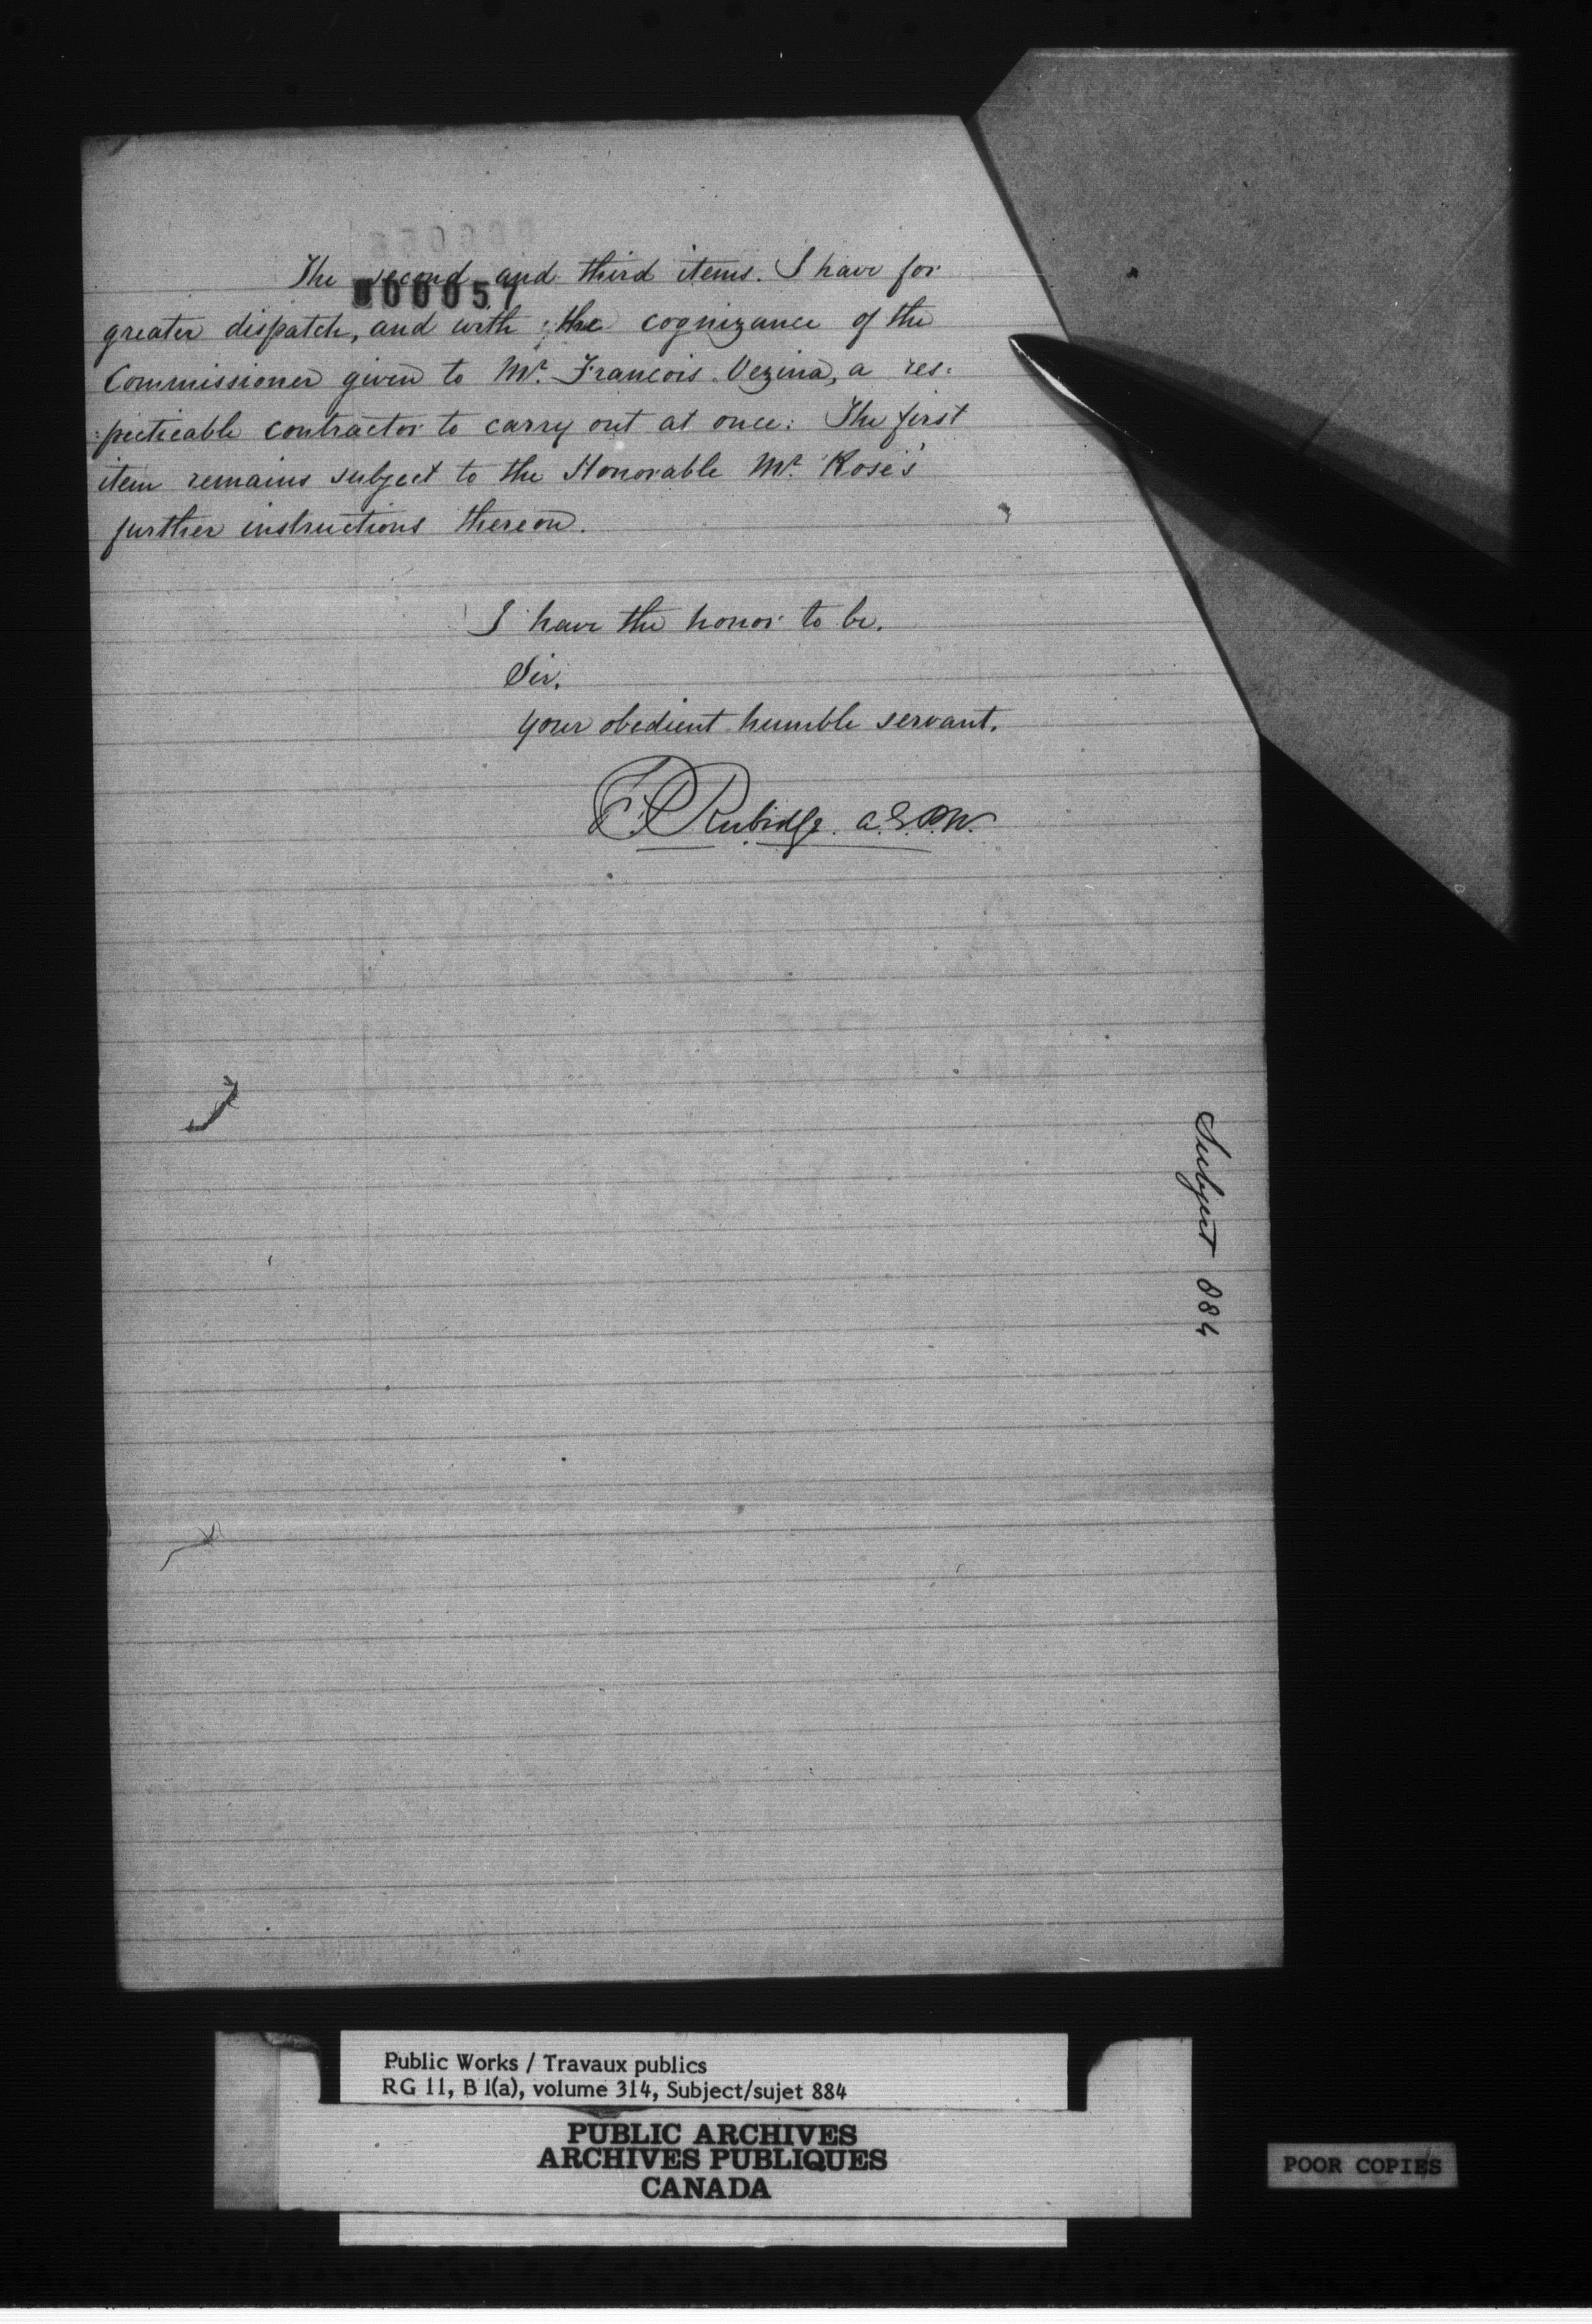 The second and third items. I have for
000057
greater dispatch, and with the cognizance of the
Commissioner given to Mr. Francois Vezina, a res:
:pecticable contractor to carry out at once: The first
item remains subject to the Honorable Mr. Rose's
further instructions thereon.
I have the honor to be.
Sir.
your obedient humble servant.
F. P. Rubidge. A.E.P.W.
Subject 884
Public Works / Travaux publics
RG 11, B 1(a), volume 314, Subject/sujet 884
PUBLIC ARCHIVES
ARCHIVES PUBLIQUES
CANADA
POOR COPIES